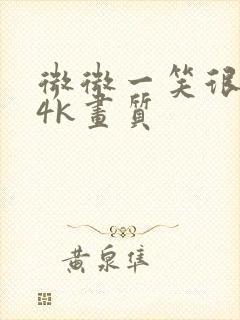 微微一笑很
4K畫質
黄泉隼